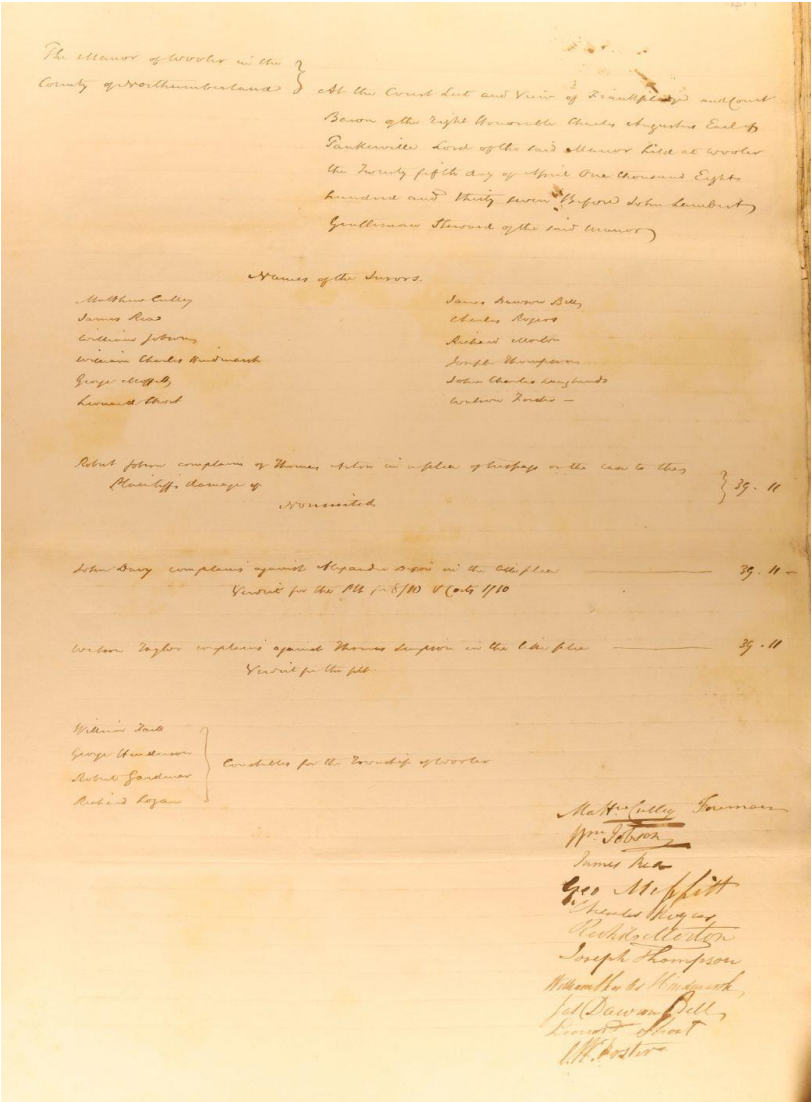 The Manor of Wooler in the
County of Northumberland }
At the Court Leet and View of Frankpledge and Court
Baron of the Right Honorable Charles Augustus Earl of
Tankerville Lord of the said Manor held at Wooler
the Twenty fifth day of April One thousand Eight
hundred and thirty seven Before John Lambert
Gentleman Steward of the said Manor
Names of the Jurors.
Matthew Culley
James Rea
William Jobson
William Charles Hindmarsh
George Moffitt
Leonard Short
James Dawson Bell
Charles Rogers
Richard Morton
Joseph Thompson
John Charles
Foster —
Robert Jobson complains of Thomas in a plea of trespass on the case to the
Plaintiffs damage of } 39 . 11
Nonsuited
John Davy complains against Alexander Dixon in the like plea — 39 . 11 —
Verdict for the Plt for 8/10 & Costs 1/10
Taylor complains against Thomas Simpson in the like plea — 39 . 11
Verdict for the plt.
William
George Henderson
Robert Gardener
Richard Logan
} Constables for the Township of Wooler
Matt.w Culley Foreman
Wm Jobson
James Rea
Geo Moffitt
Charles Rogers
Richd Morton
Joseph Thompson
William Charles Hindmarsh
Jas Dawson Bell
Leonard Short
Foster